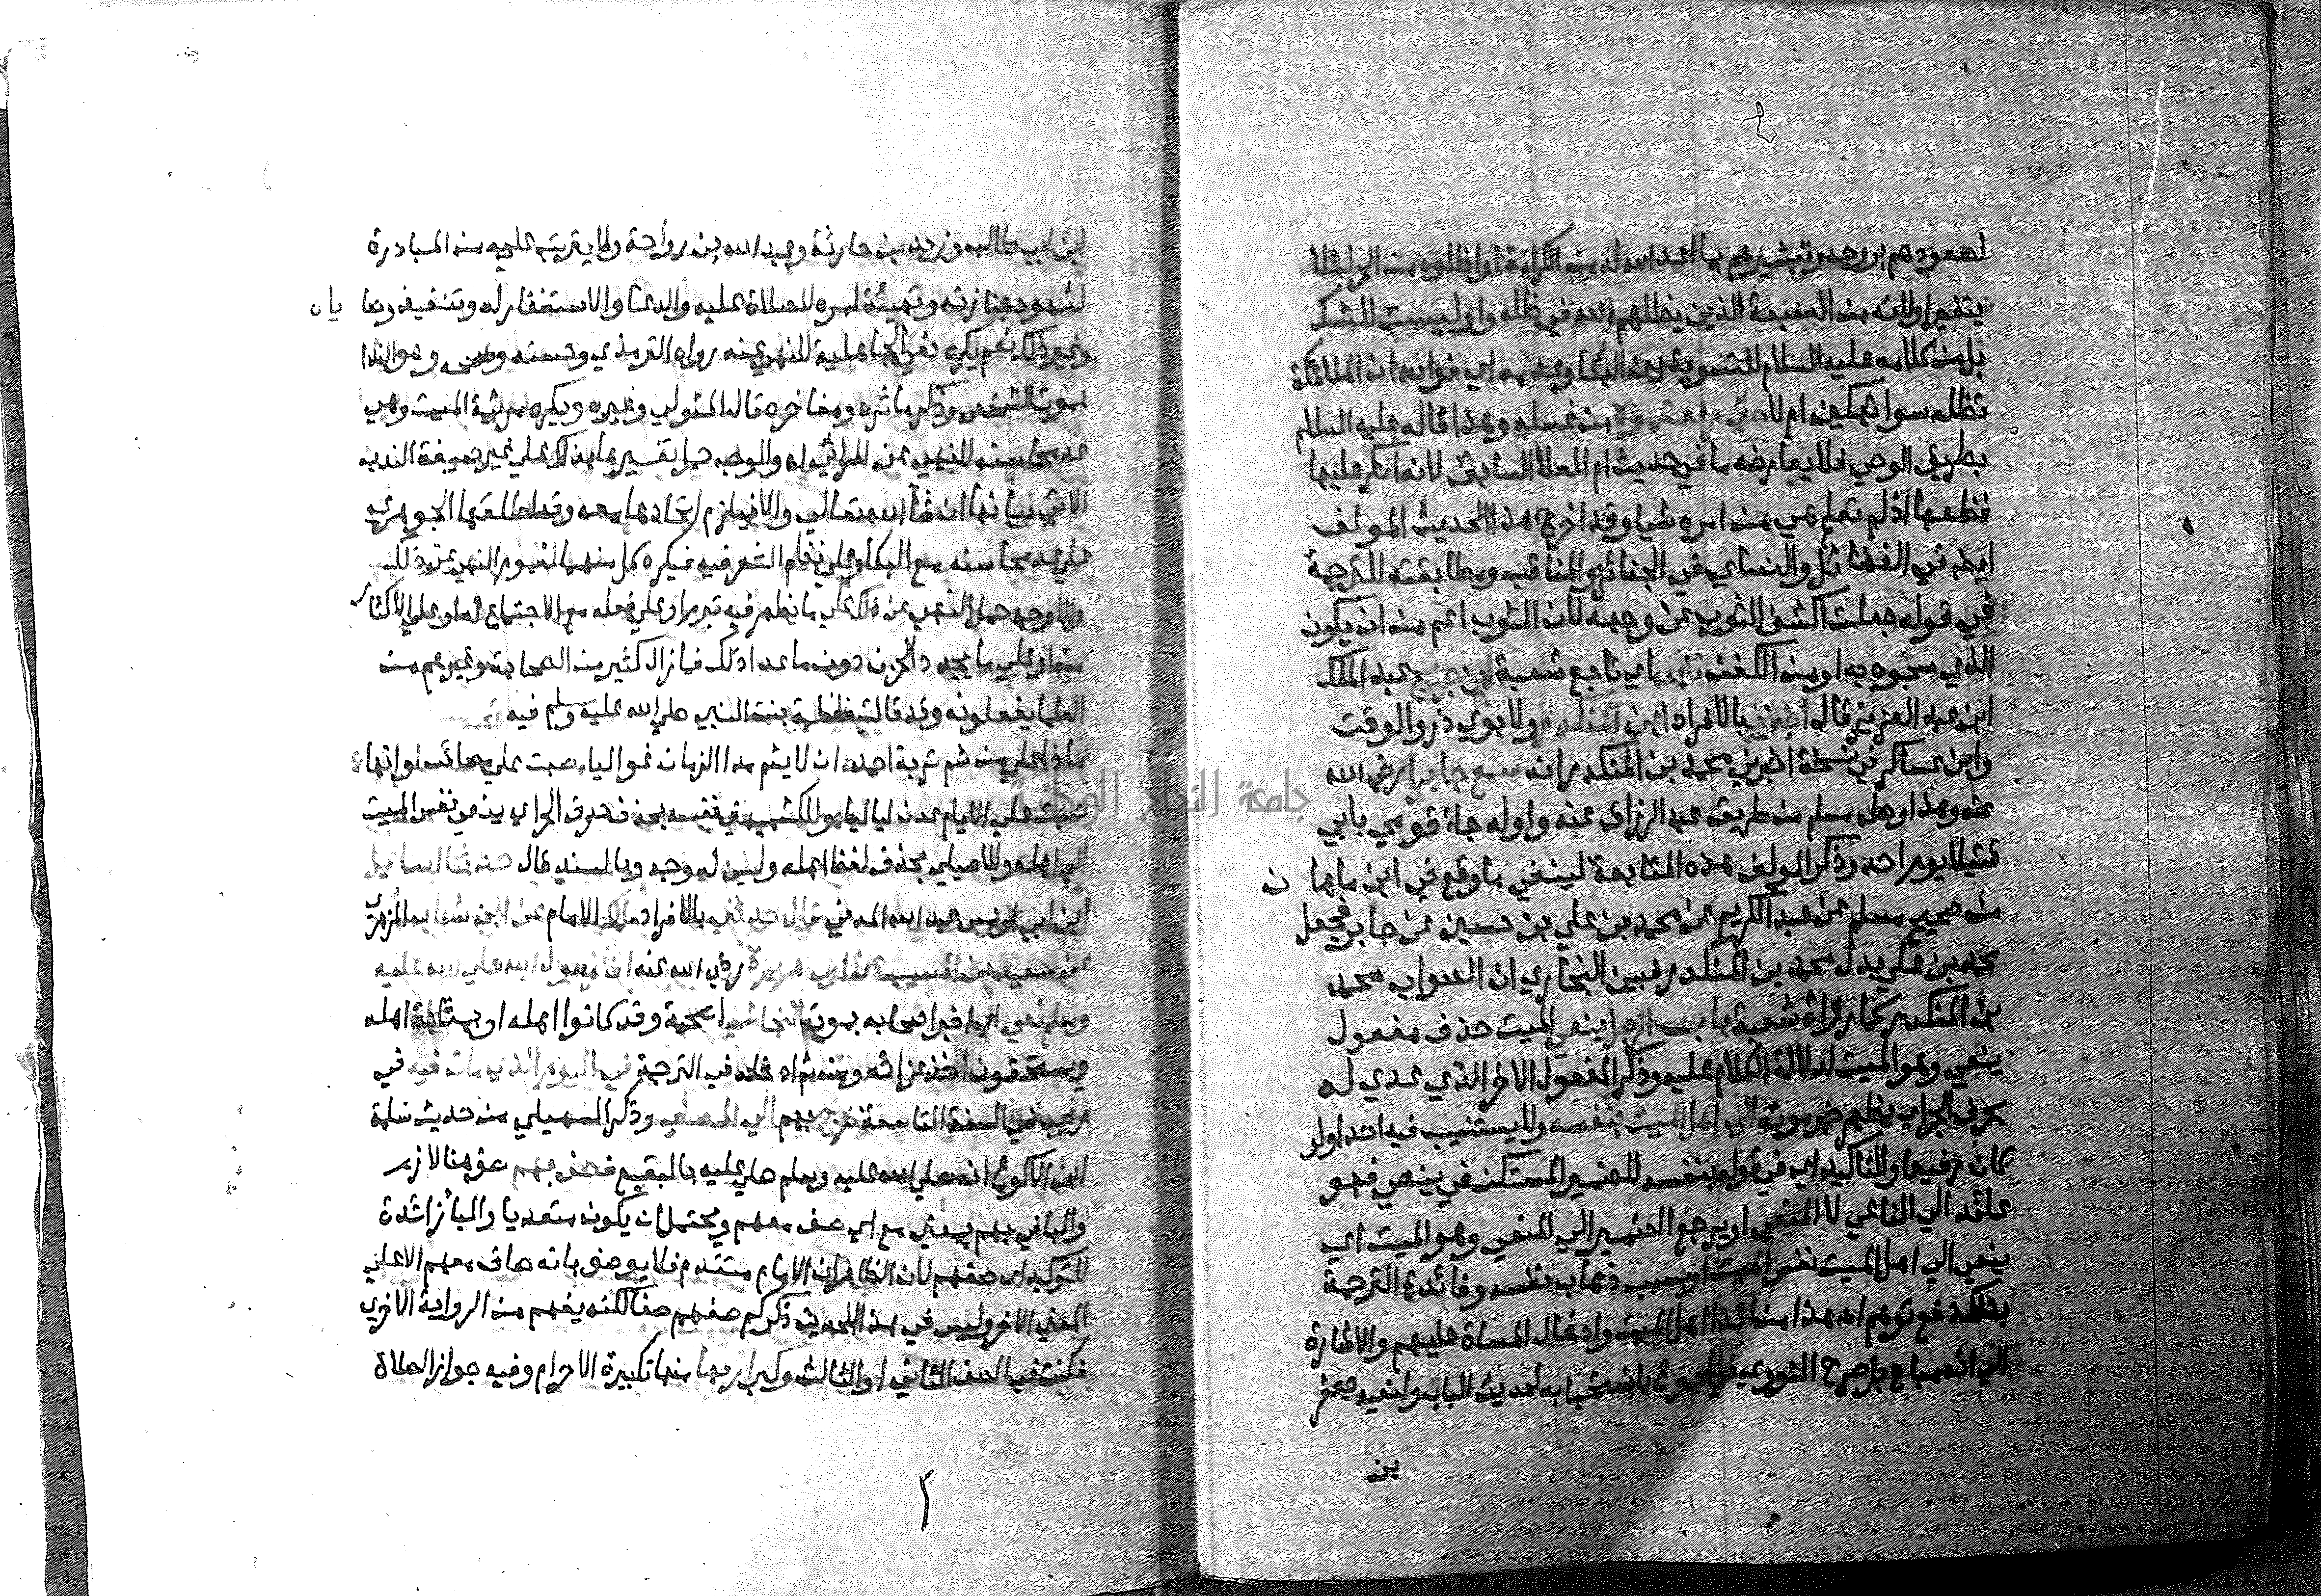 لصعودهم بروحه وتبشيرهم بما اعد الله له من الكرامة او اظلوه من الحر لئلا
يتغير اولانه من السبعة الذين يظلهم الله في ظله واو ليست للشك
بل من كلامه عليه السلام للتسوية بين البكا وعدمه اي فوالله ان الملائكة
تظله سوا تبكين ام لا حتى رفعتموه من غسله وهذا قاله عليه السلام
بطريق الوحي فلا يعارضه ما في حديث ام العلا السابق لانه انكر عليها
قطعها اذ لم تعلم هي من امره شيا وقد اخرج هذا الحديث المولف
ايضا في الفضائل والنساي في الجنائز والمناقب ومطابقته للترجمة
في قوله جعلت اكشف الثوب عن وجهه لان الثوب اعم من ان يكون
الذي سجوه به او من الكفن تابعه اي تابع شعبة ابن جريج عبد الملك
ابن عبد العزيز قال اخبرني بالافراد ابن المنكدر ولابوي ذر والوقت
وابن عساكر في نسخة اخبرني محمد بن المنكدر انه سمع جابرا رضي الله
عنه وهذا وصله مسلم من طريق عبد الرزاق عنه واوله جاء قومي بابي
قتيلا يوم احد وذكر المولف هذه المتابعة لينفي ما وقع في ابن ماهان
من صحيح مسلم عن عبد الكريم عن محمد بن علي بن حسين عن جابر فجعل
محمد بن علي بدل محمد بن المنكدر فبين البخاري ان الصواب محمد
بن المنكدر كما رواه شعبة باب الرجل ينعي الميت حذف مفعول
ينعي وهو الميت لدلالة الكلام عليه وذكر المفعول الاخر الذي عدي له
بحرف الجر اي يظهر خبر موته الي اهل الميت بنفسه ولا يستنيب فيه احدا ولو
كان رفيعا والتاكيد اي في قوله بنفسه للضمير المستكن في ينعي فهو
عائد الي الناعي لا المنعي او يرجع الضمير الي المنعي وهو الميت اي
ينعي الي اهل الميت نفس الميت او بسبب ذهاب نفسه وفائدة الترجمة
بذلك دفع توهم ان هذا من ايذا اهل الميت وادخال المساة عليهم والاشارة
الي انه مباح بل صرح النووي في المجموع باستحبابه لحديث الباب ولنعيه جعفر
بن
ابن ابي طالب وزيد بن حارثة وعبد الله بن رواحة ولما يترتب عليه من المبادرة
لشهود جنازته وتهيئة امره للصلاة عليه والدعا والاستغفار له وتنفيذ وصاياه
ونحو ذلك نعم يكره نعي الجاهلية للنهي عنه رواه الترمذي وحسنه وصححه وهو الندا
بموت الشخص وذكر ماثره ومفاخره قال المتولي وغيره ويكره مرثية الميت وهي
عد محاسنه للنهي عن المراثي اه والوجه حمل تفسيرها بذلك علي غير صيغة الندبه
الاتي بيانها ان شا الله تعالي والا فيلزم اتحادها معه وقد اطلقها الجوهري
علي عد محاسنه مع البكا وعلي نظم الشعر فيه فيكره كل منهما لعموم النهي عن ذلك
والاوجه حمل النهي عن ذلك علي ما يظهر فيه تبرم او علي فعله مع الاجتماع له او علي الاكثار
منه او علي ما يجدد الحزن دون ما عدا ذلك فما زال كثير من الصحابة وغيرهم من
العلما يفعلونه وقد قالت فاطمة بنت النبي صلي الله عليه وسلم فيه
ماذا علي من شم تربة احمد ان لا يشم مدا الزمان غواليا صبت علي مصائب لو انها
صبت علي الايام عدن لياليا وللكشميهني نفسه بحذف حرف الجر اي ينعي نفس الميت
الي اهله وللاصيلي بحذف لفظ اهله وليس له وجه وبالسند قال حدثنا اسماعيل
ابن ابي اويس عبد الله المدني قال حدثني بالافراد مالك الامام عن ابن شهاب الزهري
عن سعيد بن المسيب عن ابي هريرة رضي الله عنه ان رسول الله صلي الله عليه
وسلم نعي اي اخبر اصحابه بموت النجاشي اصحمة وقد كانوا اهله او بمثابة اهله
ويستحقون اخذ عزائه ومن ثم ادخله في الترجمة في اليوم الذي مات فيه في
رجب في السنة التاسعة خرج بهم الي المصلي وذكر السهيلي من حديث سلمة
ابن الاكوع انه صلي الله عليه وسلم صلي عليه بالبقيع فصف بهم صف هنا لازم
والبا في بهم بمعني مع اي صف معهم ويحتمل ان يكون متعديا والبا زائدة
للتوكيد اي صفهم لان الظاهر ان الامام متقدم فلا يوصف بانه صاف معهم الا علي
المعني الاخر وليس في هذا الحديث ذكر كم صفهم صفا لكنه يفهم من الرواية الاخري
فكنت في الصف الثاني او الثالث وكبر اربعا منها تكبيرة الاحرام وفيه جواز الصلاة
جامعة النجاح الوطنية